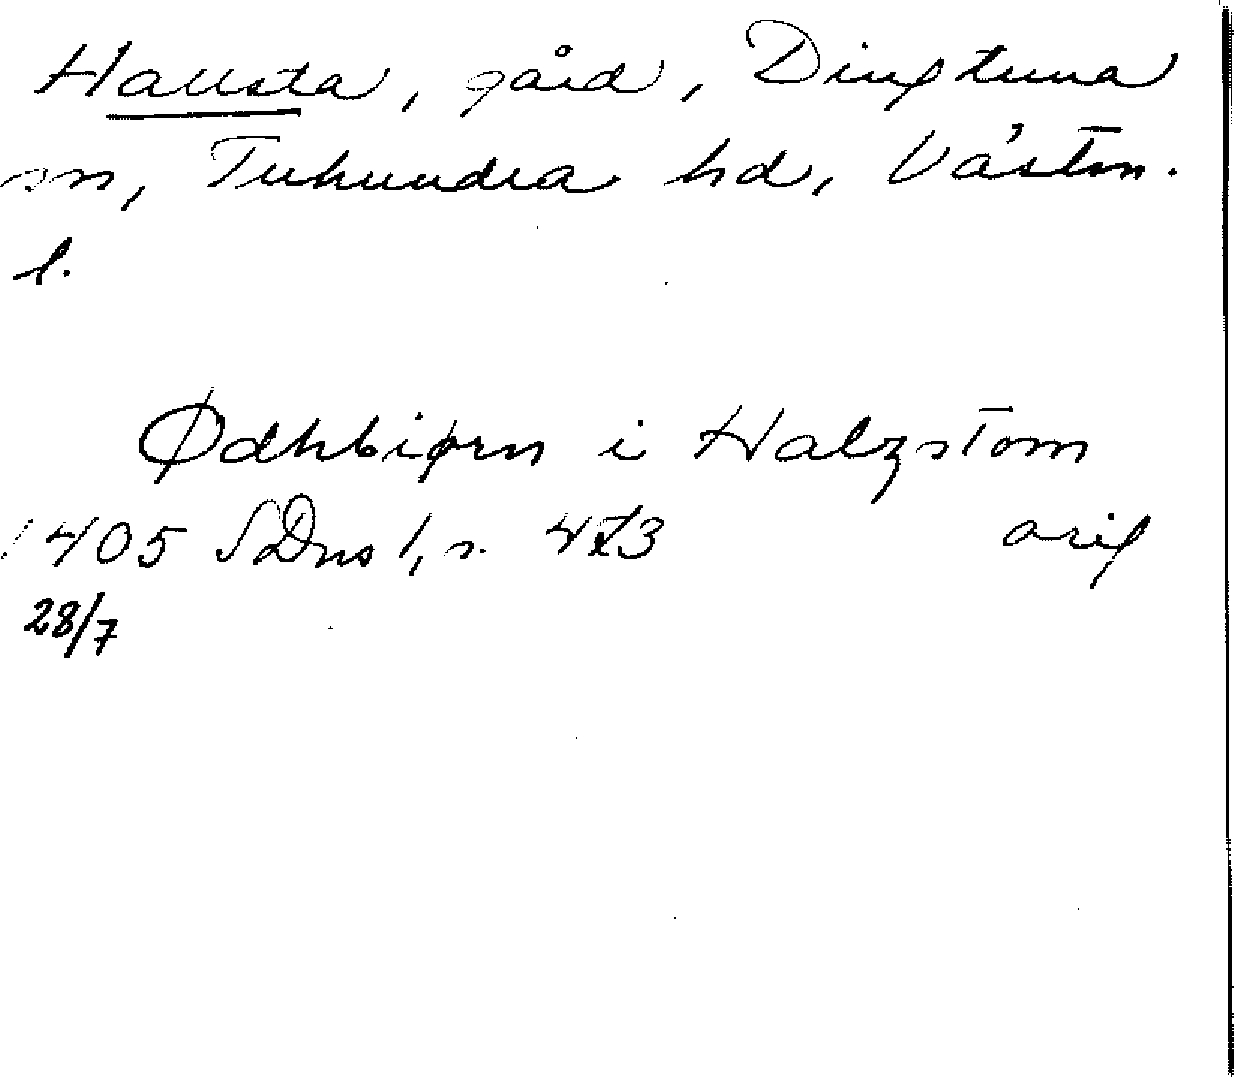 Hallsta, gård, Dingtuna
sn, Tuhundra hd, Västm.
l.
Ødhbiørn i Halzstom
1405 SDns 1, s. 473 orig
28/7